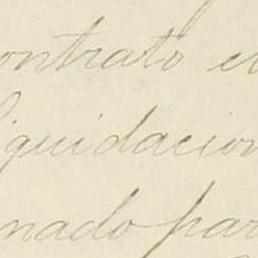 ontrato en
liquidacion
nado par